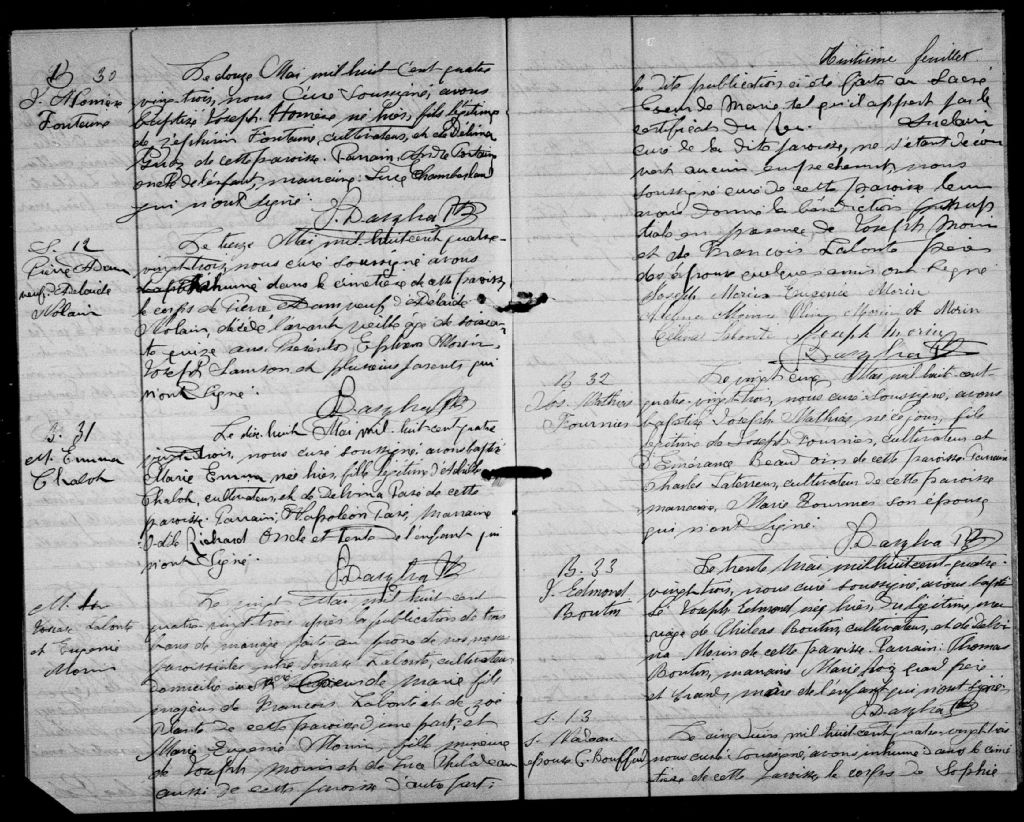 B 30
J. Homère
Fontaine
Le douze Mai mil huit cent quatre
vingt-trois, nous Curé soussigné, avons
baptisé Joseph Homère né hier, fils légitime
de Zéphirin Fontaine, cultivateur, et de Délima
de cette paroisse. Parrain, André Fontaine
oncle de l'enfant, marraine: Luce Chamberland
qui n'ont signé.
S. 12
Pierre Adam
veuf d'Adelaide
Nolain
Le treize Mai mil huit cent quatre-
vingt-trois, nous curé soussigné avons
inhumé dans le cimetière de cette paroisse
le corps de Pierre Adam veuf d'Adelaide
Nolain, décédé l'avant veille âgé de soixan-
te quinze ans. Présents Ephrem Morin,
Joseph Samson et plusieurs parents qui
n'ont signé.
B. 31
M. Emma
Le dix-huit Mai mil huit cent quatre
vingt-trois, nous curé soussigné, avons baptisé
Marie Emma née hier, fille légitime d'Achille
cultivateur, et de Délima Paré de cette
paroisse. Parrain, Napoléon Paré, Marraine
Richard Oncle et tante de l'enfant qui
n'ont signé.
M.
Lalonté
et Eugenie
Morin
Le vingt Mai mil huit cent
quatre vingt-trois après la publication de trois
bans de mariage faite au prône de nos messes
paroissiales entre Lalonté, cultivateur
domicilié au Sacré Coeur de Marie fils
majeur de François Lalonté et de Zoé
de cette paroisse d'une part; et
Marie Eugenie Morin, fille mineure
de Joseph Morin et de
aussi de cette paroisse d'autre part;
Huitième feuillet
la dite publication a été faite au Sacré
Coeur de Marie tel qu'il appert par le
certificat du
curé de la dite paroisse, ne s'étant décou
vert aucun empêchement, nous
soussigné curé de cette paroisse leur
avons donné la bénédiction nuptiale
en présence de Joseph Morin
et de François Lalonté pères
des époux quelques amis ont signé
Joseph Morin Eugenie Morin
Morin A Morin
Joseph Morin
B. 32
Jos. Mathias
Fournier
Le vingt cinq Mai mil huit-cent-
quatre-vingt-trois, nous curé soussigné, avons
baptisé Joseph Mathias, né ce jour, fils
légitime de Joseph Fournier, cultivateur et
d'Emérance Beaudoin de cette paroisse. Parrain
Charles cultivateur de cette paroisse
marraine, Marie Fournier son épouse,
qui n'ont signé.
B. 33
J. Edmond
Boutin
Le trente Mai mil huit cent-quatre-
vingt-trois, nous curé soussigné, avons bapti-
sé Joseph Edmond né hier, du légitime ma-
riage de Philéas Boutin, cultivateur, et de
Morin de cette paroisse. Parrain, Thomas
Boutin, marraine Marie grand père
et Grand, mère de l'enfant qui n'ont signé
S. 13
S. Nadeau
épouse C. Bouffard
Le cinq Juin mil huit cent quatre vingt-trois
nous curé soussigné, avons inhumé dans le cime
tière de cette paroisse le corps de Sophie